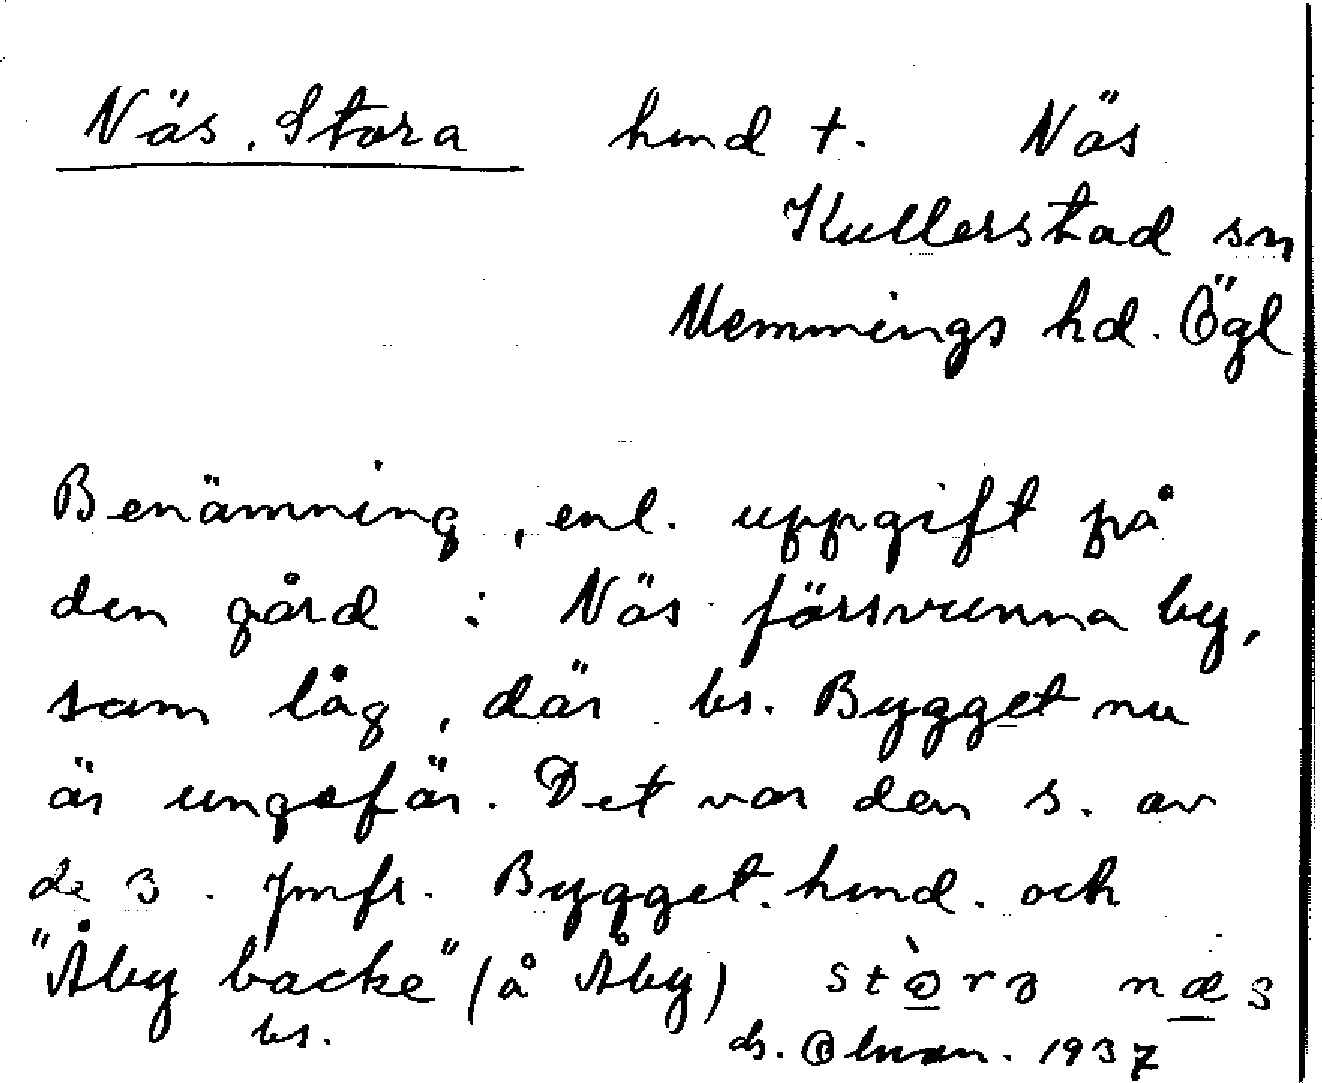 Näs, Stora hmd †. Näs
Kullerstad sn
Memmings hd. Ögl
Benämning, enl. uppgift på
den gård i Näs försvunna by,
som låg, där bs. Bygget nu
är ungefär. Det var den s. av
de 3. Jmfr. Bygget. hmd. och
"Åby backe" (å Åby) stòrɜ næs
bs. 1937